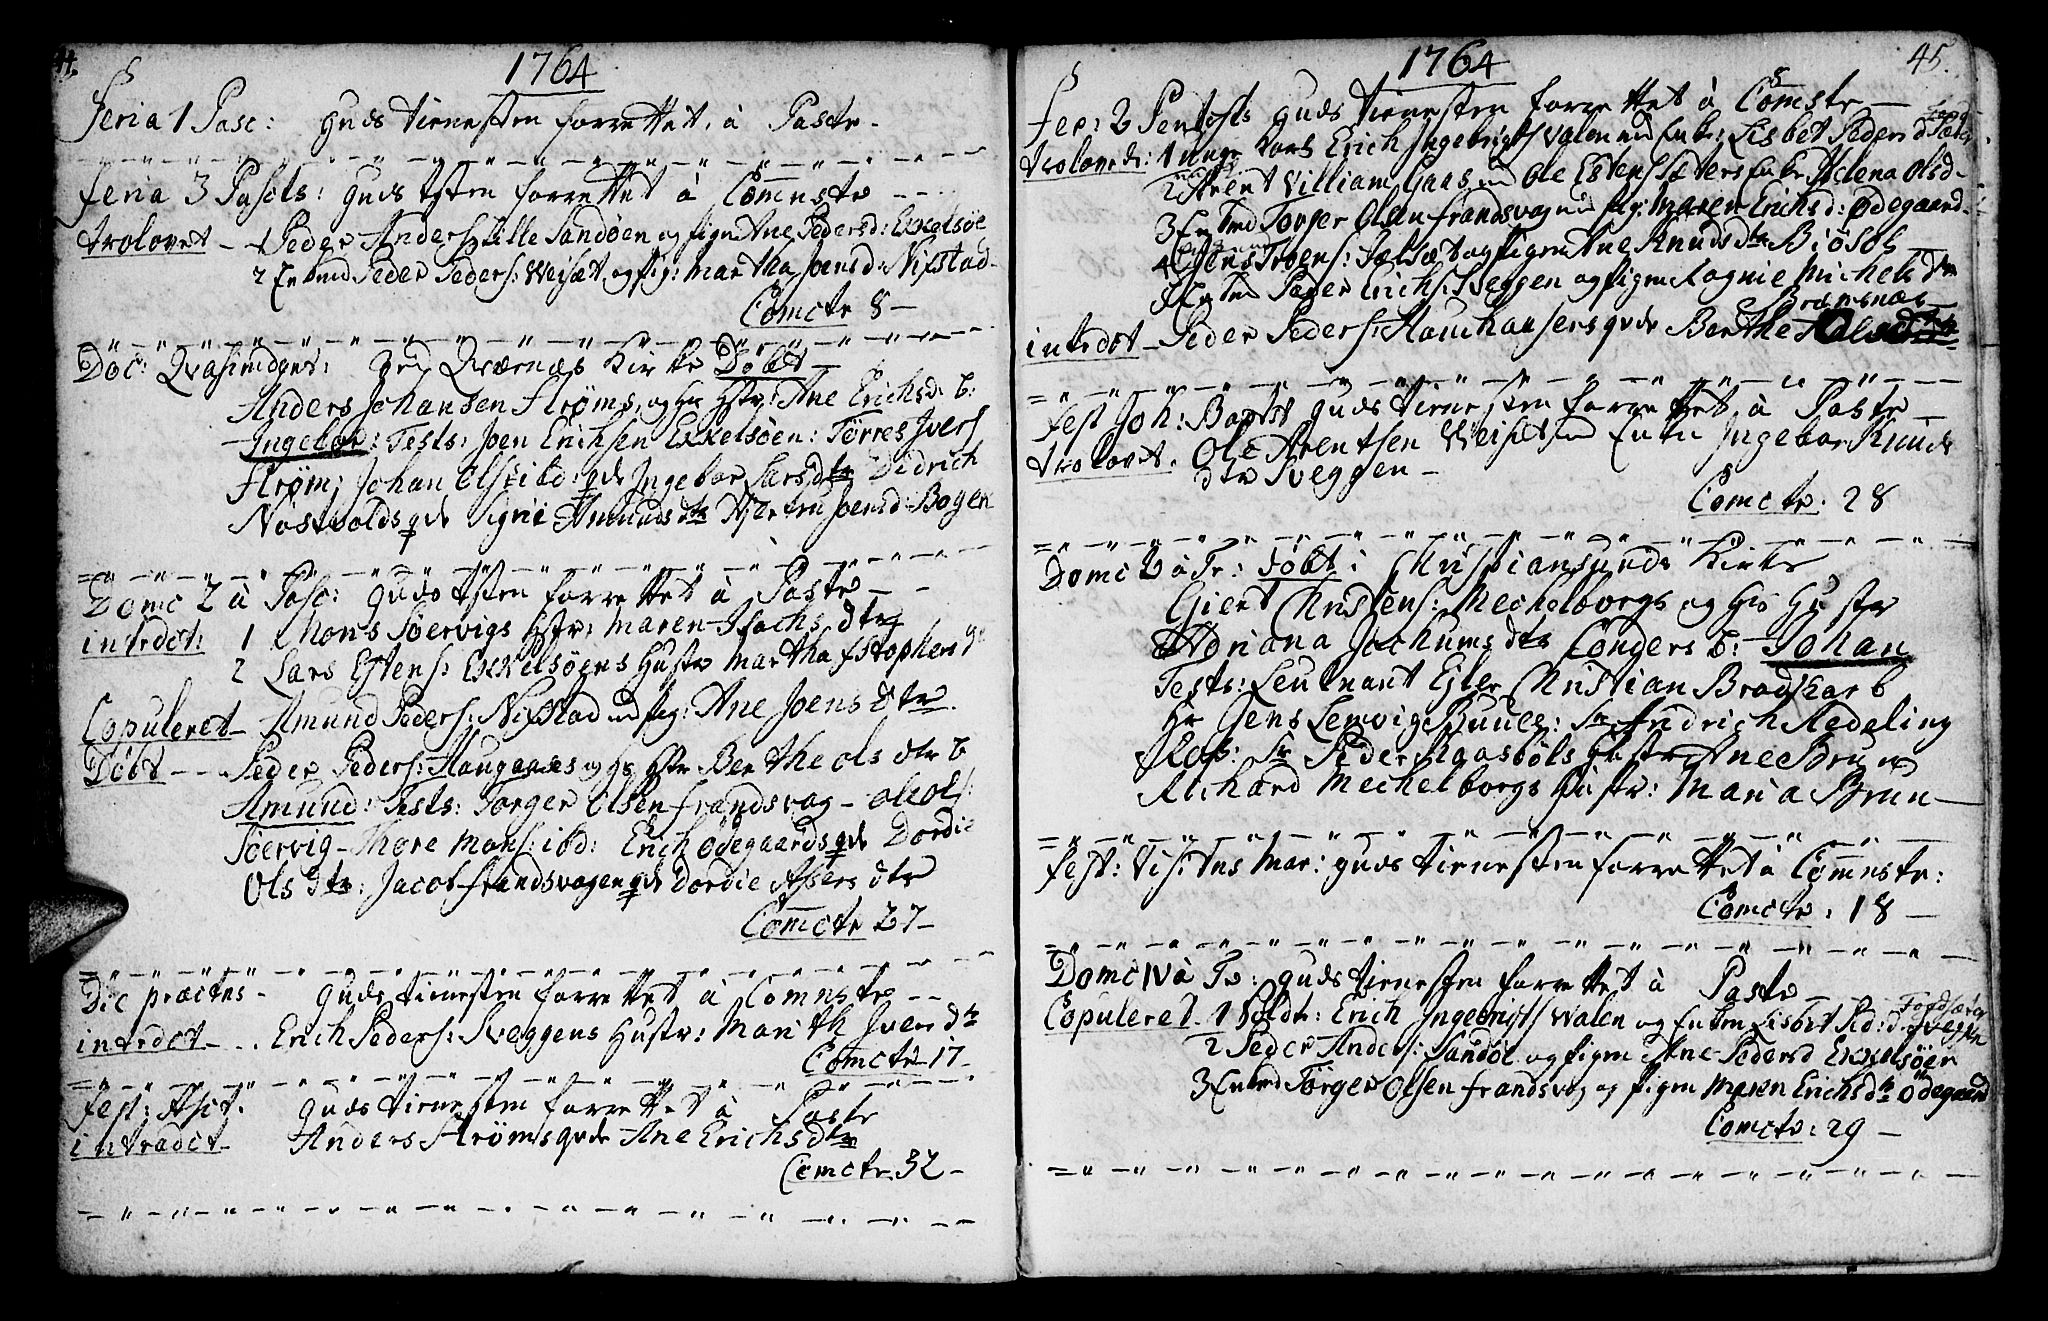 44.
1764
Feria 1 Pasc: Guds tienesten forrettet, à Pastr.
Feria 3 Paschs: Guds tsten forrettet à Comnstr
trolovet - 1 Peder Anders: lille Sandøen og pigen Ane Pedersd: Exkelsöe
2 Enkmd Peder Peders: Weisæt, og pig: Martha Joensd: Nifstad
Comctr 8 -
Doc: Qvasimdgnt: Ved Qværnæs Kirke Døbt -
Anders Johansen Strøms, og hs Hstr: Ane Erichsdr b:
Ingebor: Tests: Joen Erichsen Exkelsøen: Törres Ivers
Strøm; Johan Olsen ibd: qvd Ingebor Larsdtr Didrich
Nostvolds qvd Signe Amunds dtr Hiertru Joensd: Bogen
Domc 2 à Pasc: Guds tsten forrettet à Pastr - -
intrdct: 1 Mons Söervigs Hstr: Maren Isachs dtr
2 Lars Estens: Exkelsøens Hustr Martha Cstophersd
Copuleret - Amund Peders: Nifstad md pig: Ane Joens dtr.
Döbt - - Peder Peders: Haugenæs og hs Hstr Berthe Ols dtr b
Amund: Tests: Torger Olsen frandsvog - Ole Ols:
Söervig - Thore Mons: ibd: Erich Ödegaards qvd Dordie
Ols dtr: Jacob frandsvogen qvd Dordie Assers dtr
Comctr 27 -
Die præctus - Guds tienesten forrettet à Comnstr - -
intrdct - . Erich Peders: Sveggens Hustr: Marith Ivers dtr
Comctr 17 -
Fest: Asct. Guds tienesten forrettet à Pastr
intradct - Anders Strøms qvde Ane Erichsdtr
Comctr 32 -
1764
45.
Fer: 2 Pentcsts Guds tienesten forrettet à Comstr -
trolovede: 1 unge Karl Erich Ingebrigts Walen md Enke: Lisbet Peders d
2 Arent Villiam Gaas md Ole Estens Sæters Enke Helena Olsd -
3 Enkmd Torger Olsen frandsvog md pig: Maren Erichsd: Ødegaard -
4 Jens Troens: Sælsæt og pigen Ane Knuds dtr Biösöe -
5 Enkmd Peder Erichs: Sveggen og pigen Ragnie Michels dtr
Bremsnæs
intrdct - Peder Peders: Hauchansens qvde Berthe Ols dtr
Fest Joh: Baptst Guds tienesten forrettet, à Pastr -
trolovet. Ole Arentsen Weiset md Enken Ingebor Knuds
dtr Sveggen -
Comctr. 28
Domc 2 à Tr: Döbt i Christiansunds Kirke
Giert Christens: Mechelborgs og hs Hustr
Adriana Jochums dtr Congers b: Johan
Tests: Leutnant Ejler Christian Brodskorb
Hr Jens Lemvig Buuls: Sr Fridrich Redeling
Slag: Sr Peder Raasbøls Hustr Ane Brun
Richard Mechelborgs Hustr: Maria Brun -
Fest: Vis: Tns Mar: Guds tienesten forrettet à Comnstr:
Comctr: 18 -
Domc IV à Tr: Guds tienesten forrettet à Pastr
Copuleret. 1 Soldtr: Erich Ingebrigts Walen og Enken Lisbet Ped: d: Sveggen
2 Peder Anders: Sandöe og pigen Ane Pedersd Exkelsöen
3 Enkmd Törger Olsen frandsvog og pigen Maren Erichsdtr Ödegaard
Comctr: 29 -